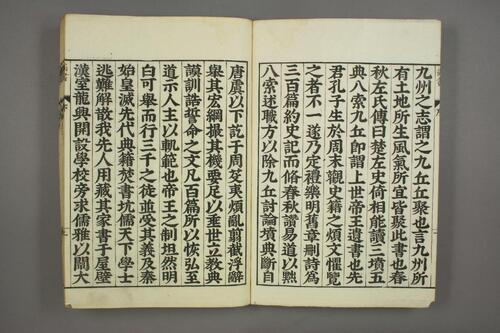 九州之志謂之九丘丘聚也言九州所
有土地所生風氣所宜皆聚此書也春
秋左氏傳曰楚左史倚相能讀三墳五
典八索九丘即謂上世帝王遺書也先
君孔子生於周末覩史籍之煩文懼覽
之者不一遂乃定禮樂明舊章刪詩爲
三百篇約史記而脩春秋讚易道以黜
八索述職方以除九丘討論墳典斷自
唐虞以下訖于周芟夷煩亂翦截浮辭
舉其宏綱撮其機要足以垂世立教典
謨訓誥誓命之文凡百篇所以恢弘至
道示人主以軌範也帝王之制坦然明
白可舉而行三千之徒並受其義及秦
始皇滅先代典籍焚書坑儒天下學士
逃難解散我先人用藏其家書于屋壁
漢室龍興開設學校旁求儒雅以闡大